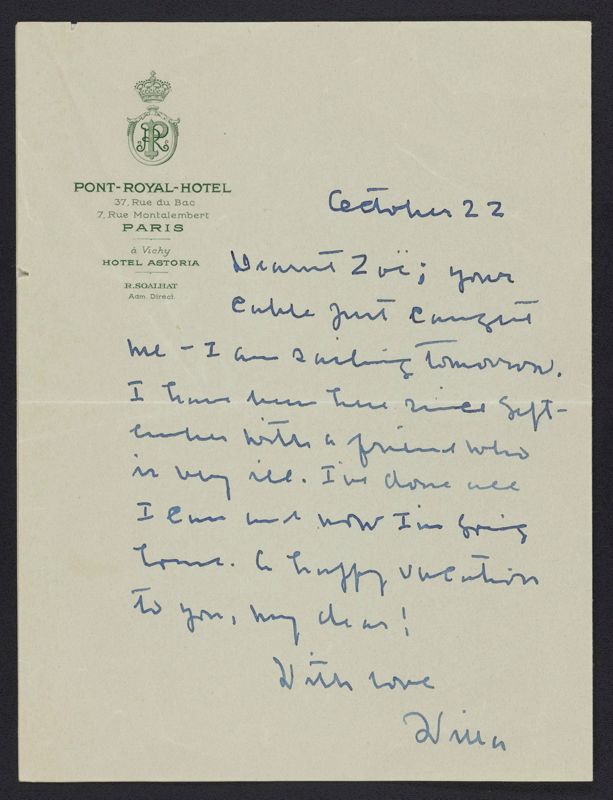 PR
PONT-ROYAL-HOTEL
37, Rue du Bac
7, Rue Montalembert
PARIS
à Vichy
HOTEL ASTORIA
R. SOALHAT
Adm. Direct.
October 22
Dearest Zoë; your
cable just caught
me - I am sailing tomorrow.
I have been here since Sept-
ember with a friend who
is very ill. I've done all
I can and now I'm going
home. A happy vacation
to you, my dear!
With love
Willa